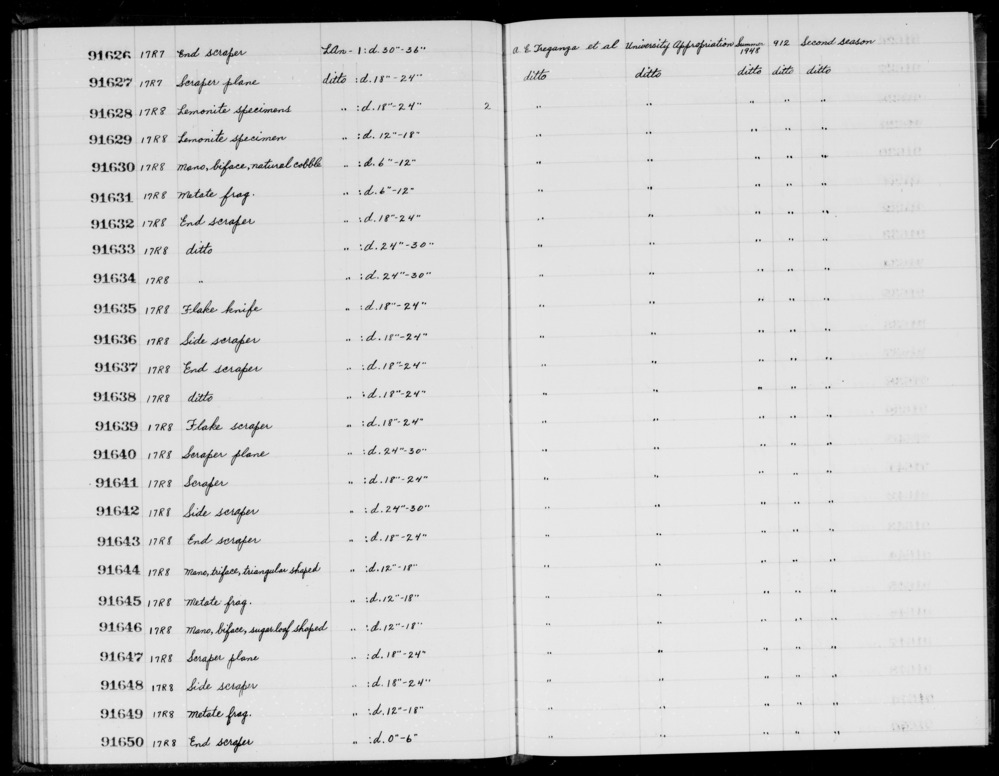 91626 17R7 End scraper LAn-1:d.30"-36" A E Treganza et al University Appropriation Summer 1948 912 Second season
91627 17R7 Scraper plane ditto :d.18"-24" ditto ditto ditto ditto ditto
91628 17R8 Lemonite specimens " :d.18"-24" 2 " " " " "
91629 17R8 Lemonite specimen " :d.12"-18" " " " " "
91630 17R8 Mano, biface, natural cobble " :d.6"-12" " " " " "
91631 17R8 Metate frag. " :d.6"-12" " " " " "
91632 17R8 End scraper " :d.18"-24" " " " " "
91633 17R8 ditto " :d.24"-30" " " " " "
91634 17R8 " " :d.24"-30" " " " " "
91635 17R8 Flake knife " :d.18"-24" " " " " "
91636 17R8 Side scraper " :d.18"-24" " " " " "
91637 17R8 End scraper " :d.18"-24" " " " " "
91638 17R8 ditto " :d.18"-24" " " " " "
91639 17R8 Flake scraper " :d.18"-24" " " " " "
91640 17R8 Scraper plane " :d.24"-30" " " " " "
91641 17R8 Scraper " :d.18"-24" " " " " "
91642 17R8 Side scraper " :d.24"-30" " " " " "
91643 17R8 End scraper " :d.18"-24" " " " " "
91644 17R8 Mano, triface, triangular shaped " :d.12"-18" " " " " "
91645 17R8 Metate frag. " :d.12"-18" " " " " "
91646 17R8 Mano, biface, sugarloaf shaped " :d.12"-18" " " " " "
91647 17R8 Scraper plane " :d.18"-24" " " " " "
91648 17R8 Side scraper " :d.18"-24" " " " " "
91649 17R8 Metate frag. " :d.12"-18" " " " " "
91650 17R8 End scraper " :d.0"-6" " " " " "